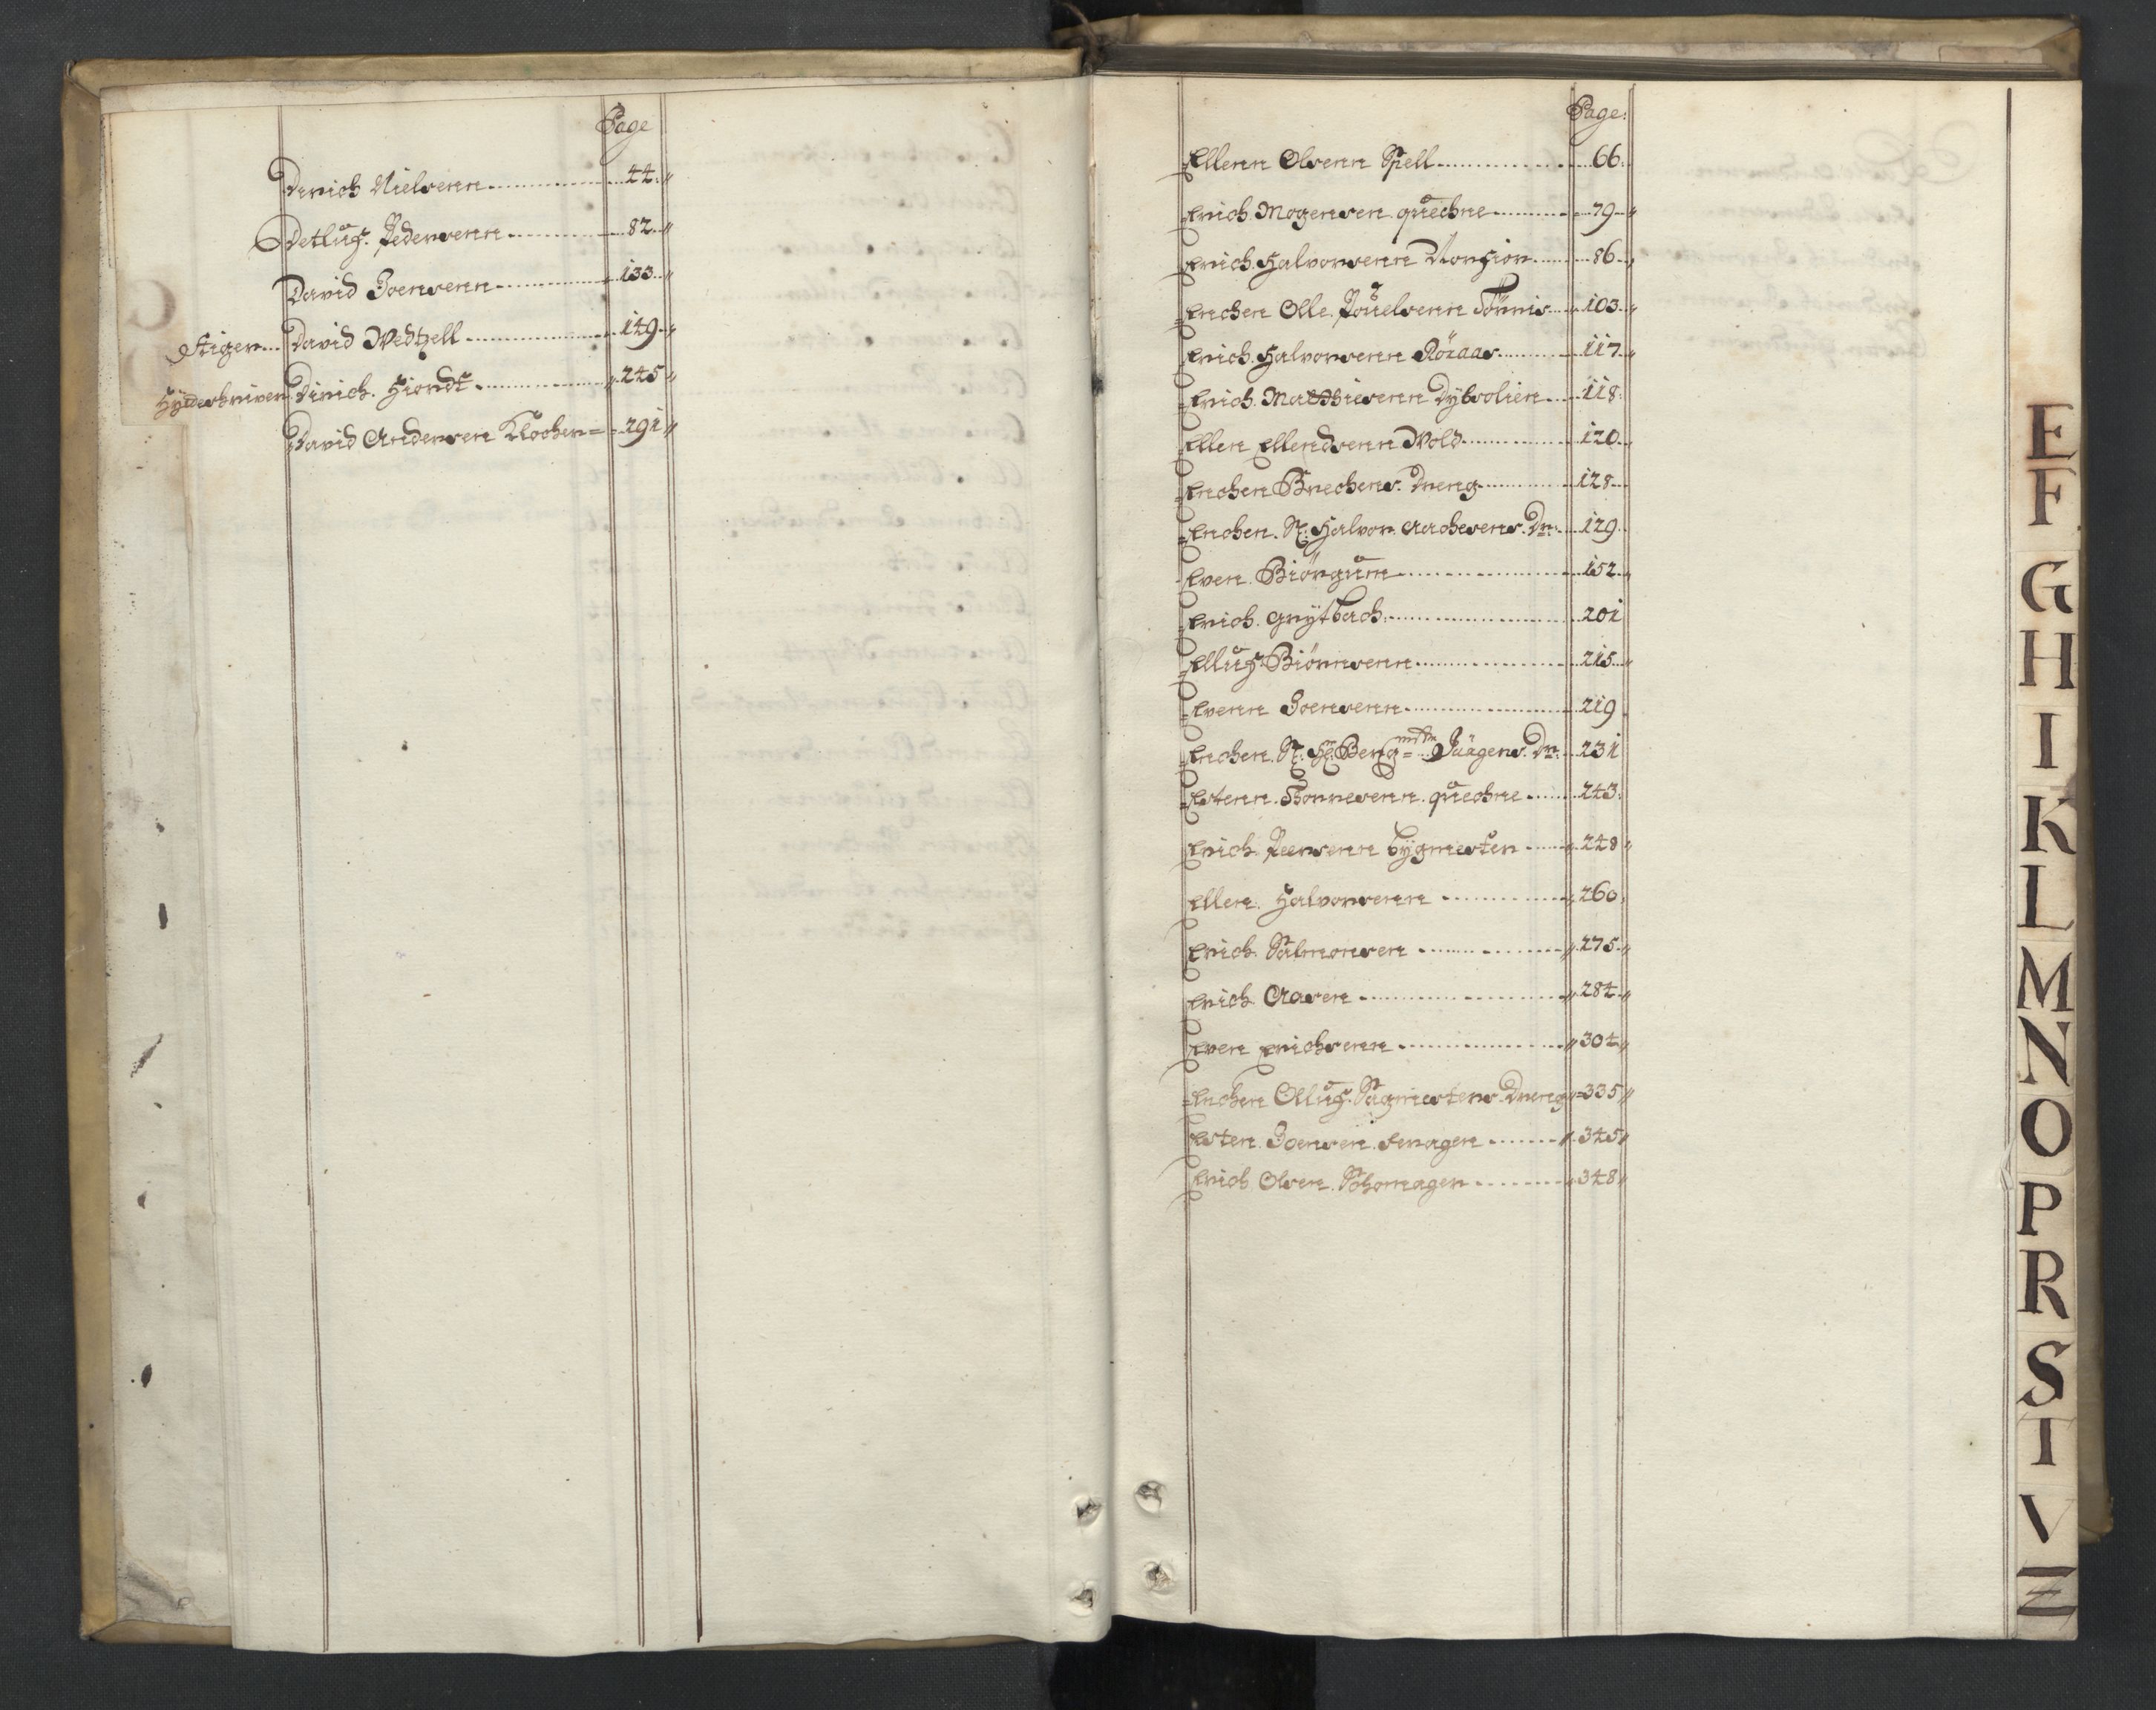 Page
Dirich Nielsenn 44
Detluf. Pedersenn 82
David Joensenn 133
Stiger David Wedtzell 149
Hÿtteskriver Dirich. Hiordt 245
David Andersen Klocker 291
Page:
Ellenn Olsenn Spell 66
Erich Mogensen quechne 79
Erich Halvorsenn Aasen 86
Encken Olle Pouelsenn Tönnis 103
Erich Halvorsenn Röraas 117
Erich Matthiesenn Dybvolien 118
Ellen Ellendsenn Wold 120
Encken Brechens Dreng 128
Encken. Sl: Halvor Aachesens Dr: 129
Even Biörgum 152
Erich Grytbach 201
Elluf Biörnsenn 215
Evenn Joensenn 219
Encken Sl: Hr: Berg mstr Jrgens Dr: 231
Estenn Tonnesenn quechne 243
Erich Peersenn bÿgmester 248
Ellen Halvorsenn 260
Erich Salmonsen 275
Erich Aasen 284
Even Erichsenn 304
Encken Olluf Sagmesters Dreng 335
Esten Joensen 345
Erich Olsen Schomager 348
E
F
G
H
I
K
L
M
N
O
P
R
S
T
V
Z